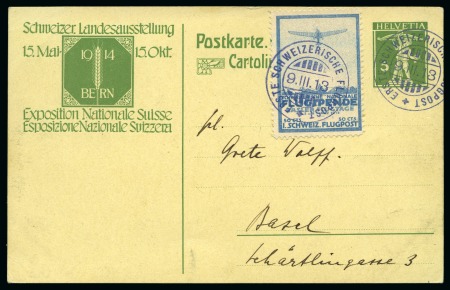 Schweizer. Landesausstellung
15. Mai 15. Okt.
19 14
BERN
Exposition Nationale Suisse
Esposizione Nazionale Svizzera
Postkarte.
Cartolin
HELVETIA
5
ERSTE SCHWEIZERISCHE
9.III.13
FLUGSPENDE
I. SCHWEIZ. FLUGPOST
frl.
Grete Wolff.
Basel
Schärtlingasse 3